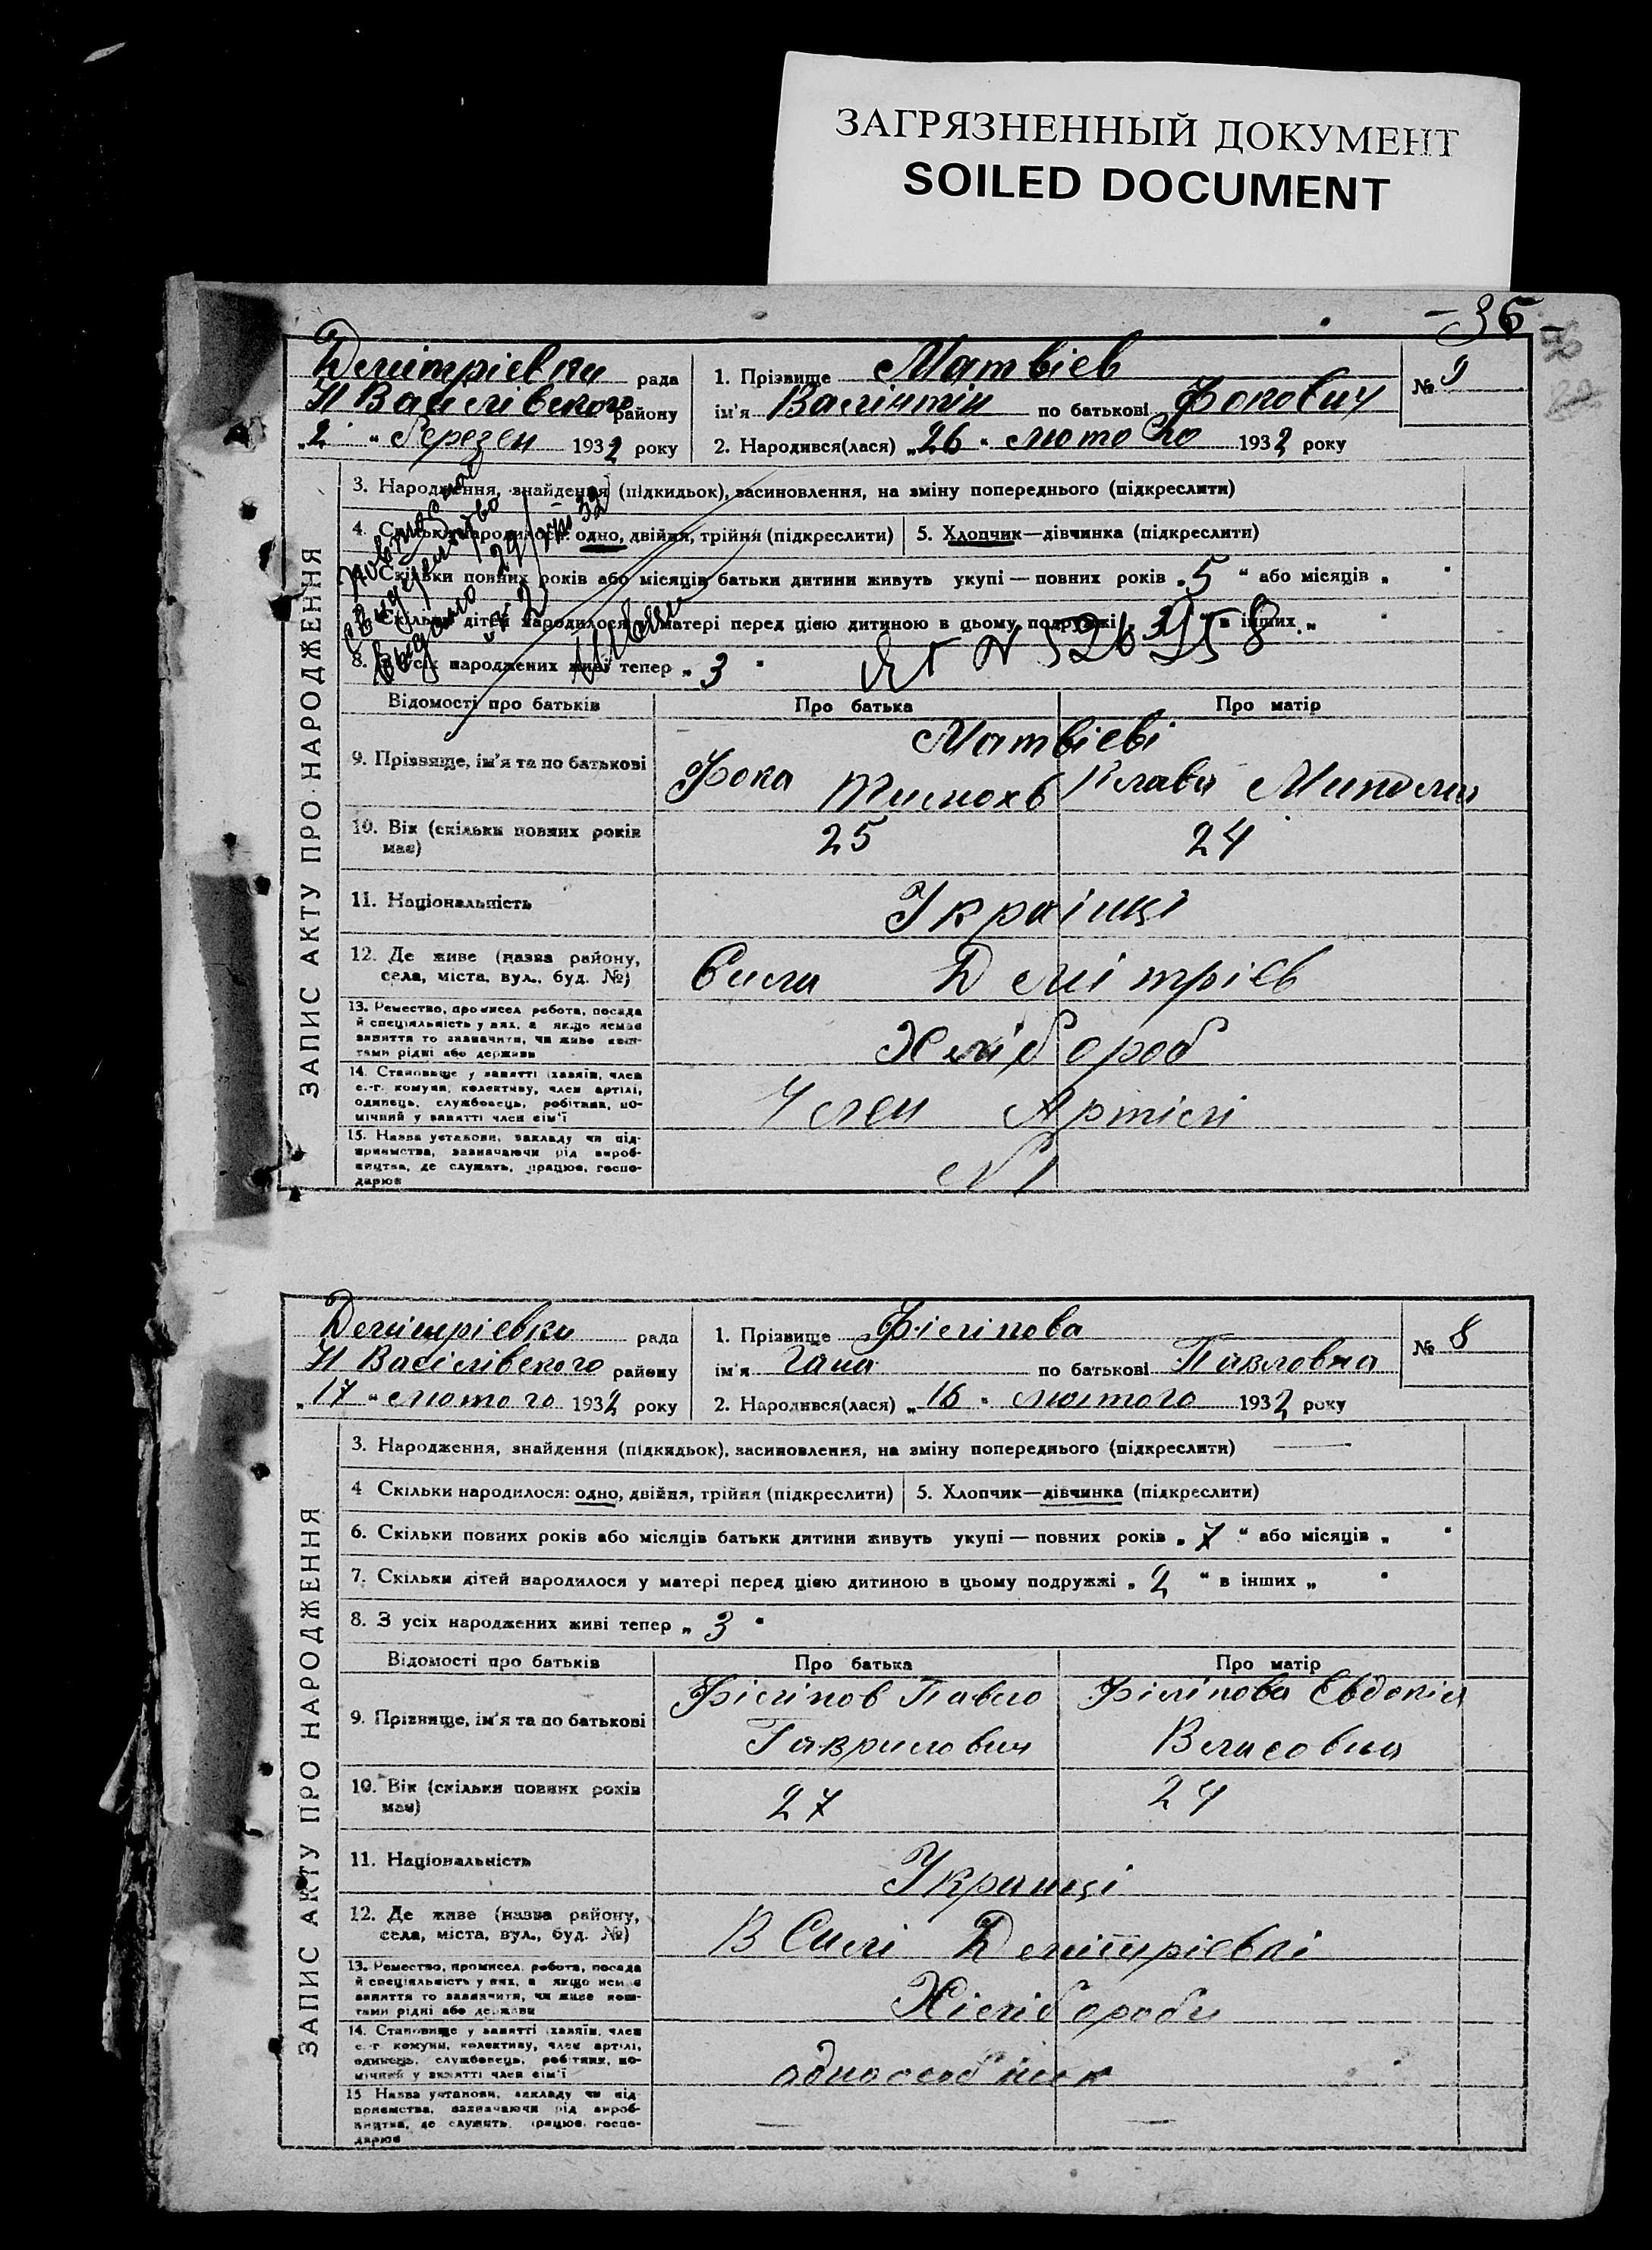 ЗАГРЯЗНЕННЫЙ ДОКУМЕНТ
SOILED DOCUMENT
ЗАПИС АКТУ ПРО НАРОДЖЕННЯ
Дмітрієвки рада
Н Васілівского району
„2“ Березен 1932 року
1. Прізвище Матвієв
ім'я Валінтін по батькові Фокович
2. Народився(лася) „26“ лютого 1932 року
№ 9
3. Народження, знайдення (підкидьок), засиновлення, на зміну попереднього (підкреслити)
4. Скільки народилося: одно, двійня, трійня (підкреслити) 5. Хлопчик—дівчинка (підкреслити)
Скільки повних років або місяців батьки дитини живуть укупі — повних років „5“ або місяців „ “
Скільки дітей народилося у матері перед цією дитиною в цьому подружжі в інших „
8. З усіх народжених живі тепер „3“
Відомості про батьків Про батька Про матір
9. Прізвище, ім'я та по батькові
Матвієві
Фока
10. Вік (скільки повних років має) 25 24
11. Національність Українці
12. Де живе (назва району, села, міста, вул., буд. №) Дмітрієв
13. Ремество, промисел, робота, посада
й спеціяльність у них, а якщо немає
заняття то зазначити, чи живе кош-
тами рідні або держави
Хлібороб
14. Становище у занятті (хазяїн, член
с.-г. комуни, колективу, член артілі,
одинець, службовець, робітник, по-
мічний у занятті член сім'ї
Член Артілі
15. Назва установи, закладу чи під-
приємства, зазначаючи рід вироб-
ництва, де служить, працює, госпо-
дарює
N 1
ЗАПИС АКТУ ПРО НАРОДЖЕННЯ
Дмітрієвки рада
Н Васілівского району
„17“ лютого 1932 року
1. Прізвище Філіпова
ім'я Гана по батькові Павловна
2. Народився(лася) „16“ лютого 1932 року
№ 8
3. Народження, знайдення (підкидьок), засиновлення, на зміну попереднього (підкреслити)
4 Скільки народилося: одно, двійня, трійня (підкреслити) 5. Хлопчик—дівчинка (підкреслити)
6. Скільки повних років або місяців батьки дитини живуть укупі — повних років „7“ або місяців „ “
7. Скільки дітей народилося у матері перед цією дитиною в цьому подружжі „2“ в інших „ “
8. З усіх народжених живі тепер „3“
Відомості про батьків Про батька Про матір
9. Прізвище, ім'я та по батькові
Філіпов Павло Філіпова Евдокія
Гаврилович Власовна
10. Вік (скільки повних років має) 27 24
11. Національність Українці
12. Де живе (назва району, села, міста, вул., буд. №) В Силі Дмітрієвкі
13. Ремество, промисел, робота, посада
й спеціяльність у них, а якщо немає
заняття то зазначити, чи живе кош-
тами рідні або держави
Хліборобы
14. Становище у занятті (хазяїн, член
с.-г. комуни, колективу, член артілі,
одинець, службовець, робітник, по-
мічний у занятті член сім'ї
одноосібник
15 Назва установи, закладу чи під-
приємства, зазначаючи рід вироб-
ництва, де служить, працює, госпо-
дарює